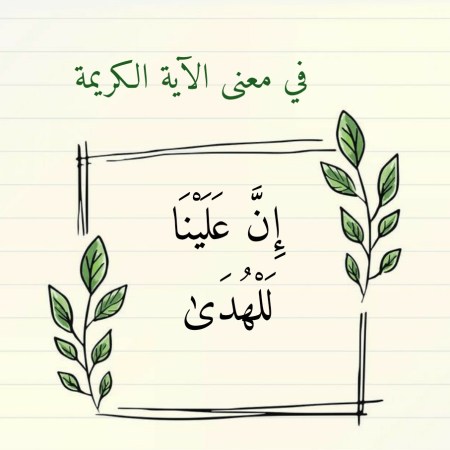 في معنى الآية الكريمة
إِنَّ عَلَيْنَا
لَلْهُدَىٰ